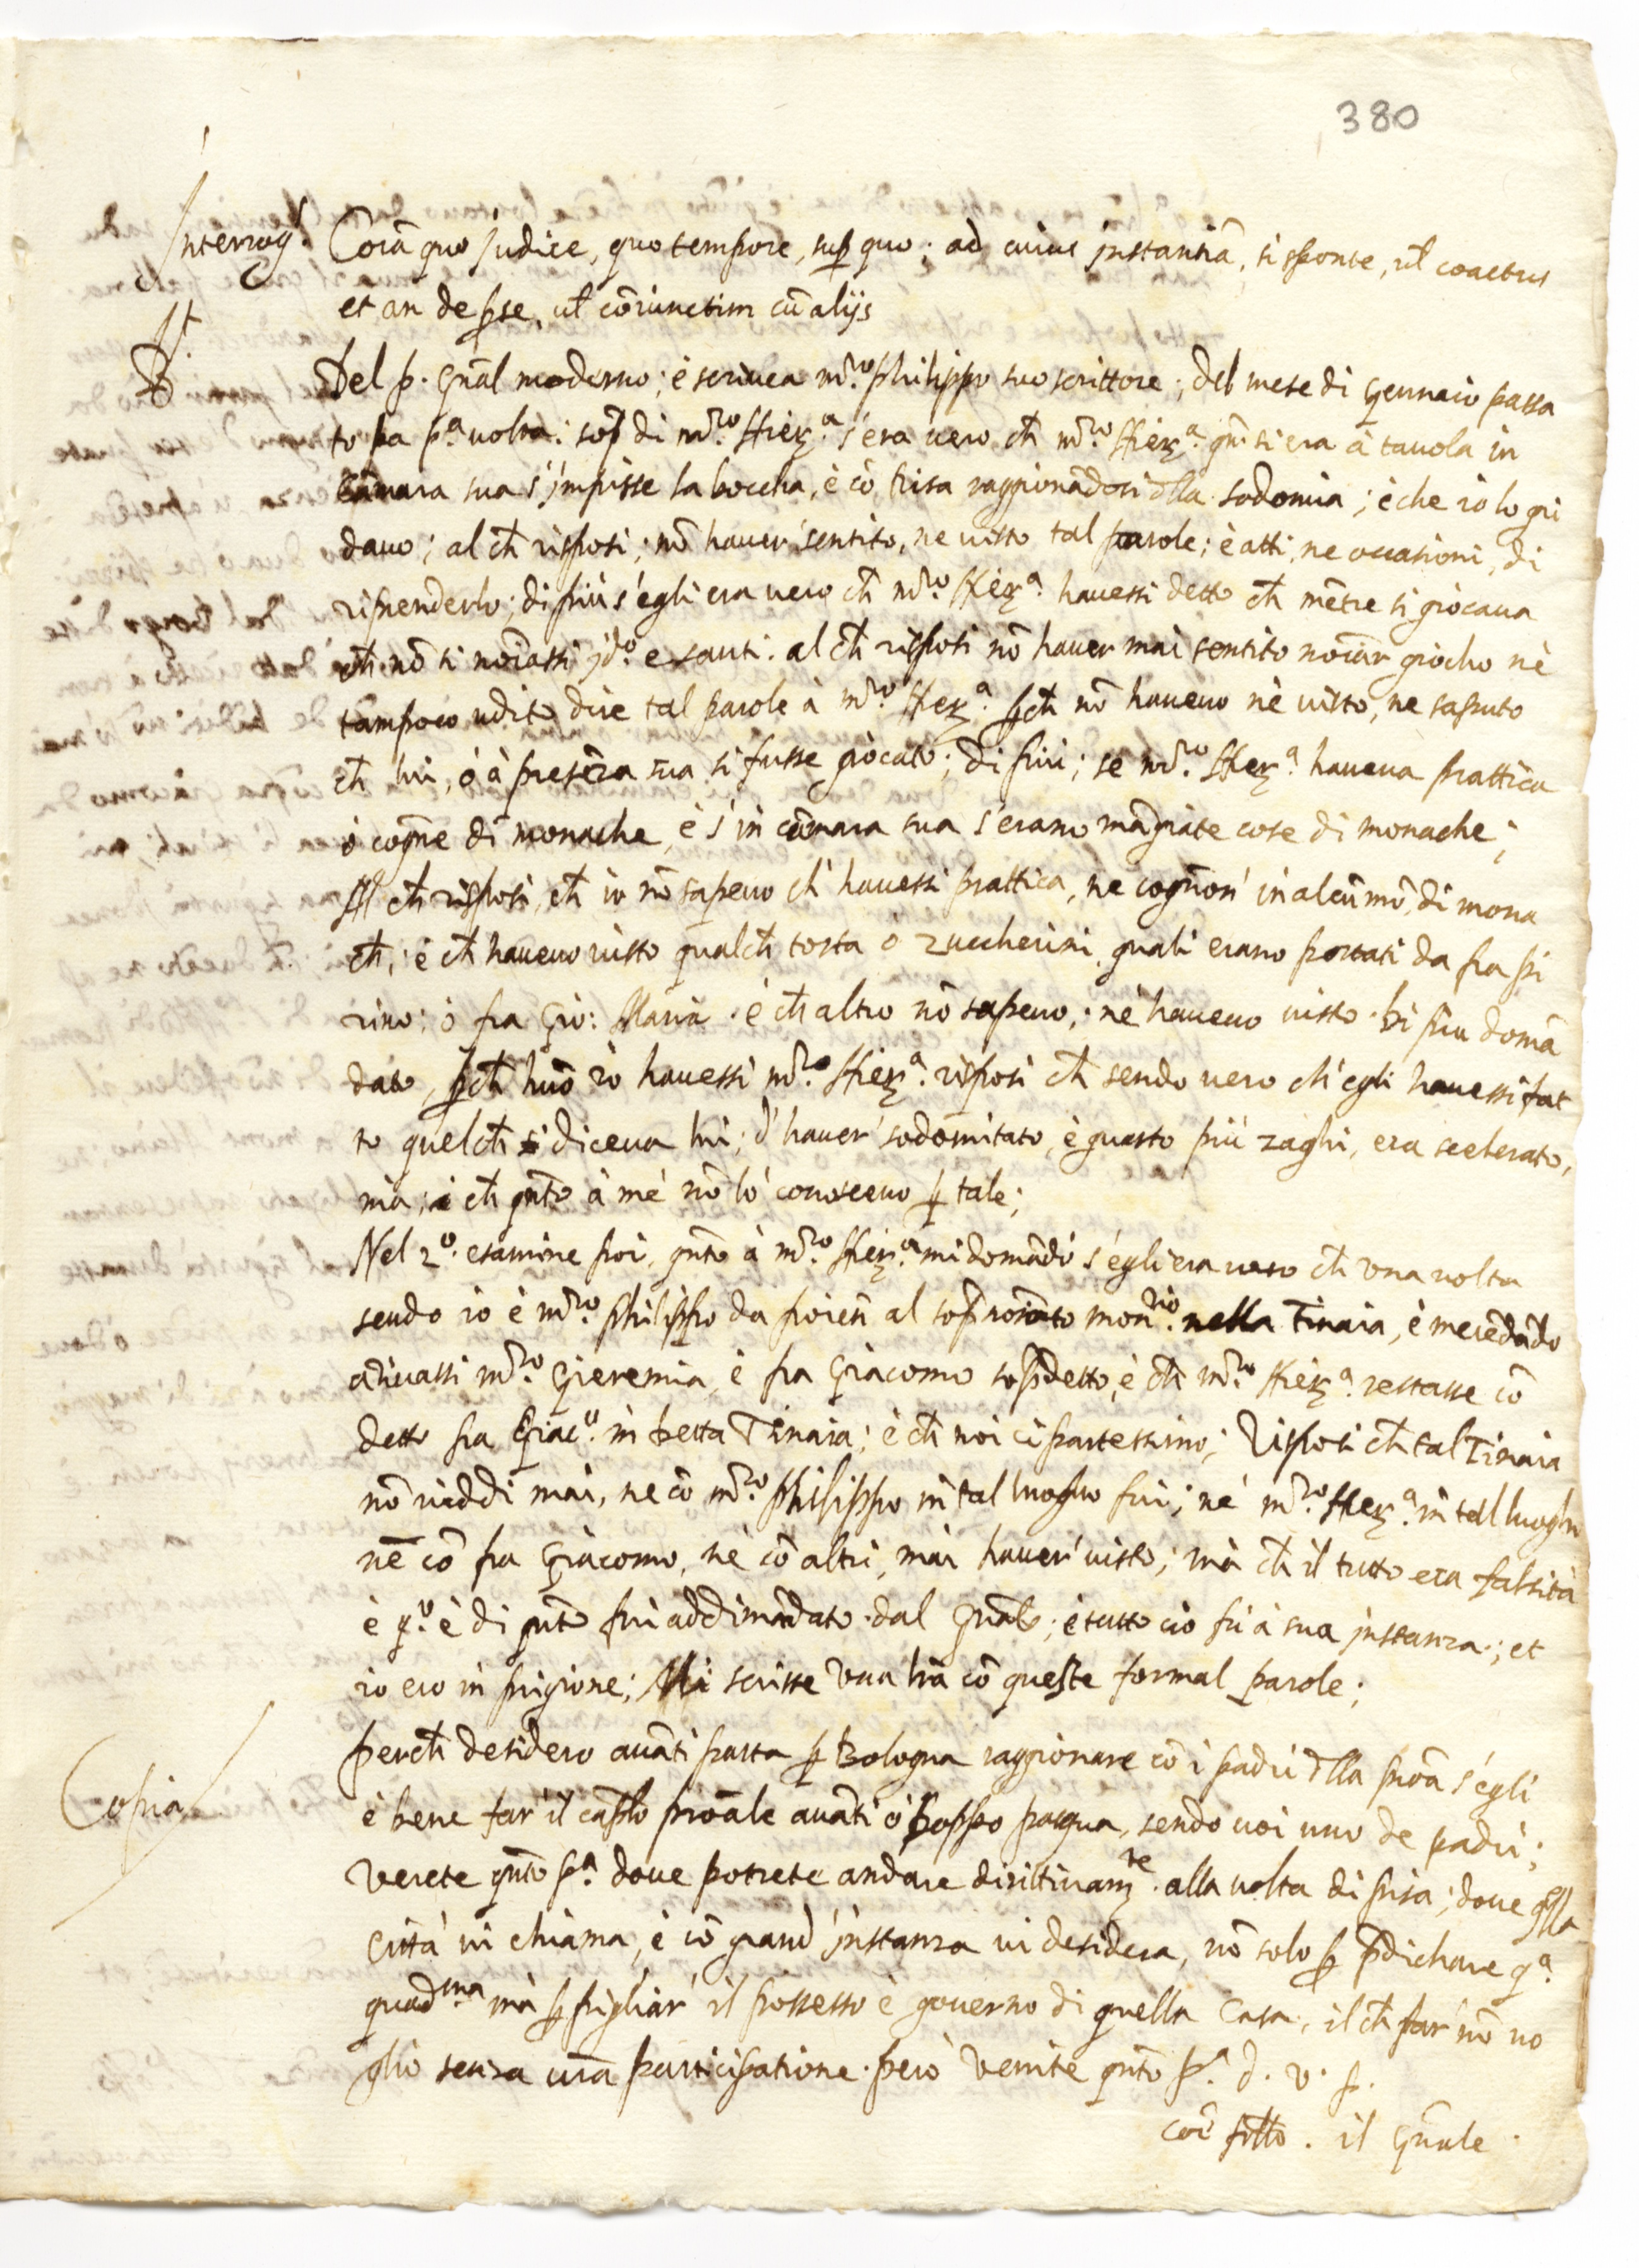 380
Interrog.s Corā quo Judice, quo tempore, sup quo; ad cuius instantiā, si sponte, ul coactus
et an de p se, ul cōiunctim cū aliis
R.t Del p. Gnāl moderno; è scriuea m.ro Philippo suo scrittore; del mese di Gennaio passa
to pa p.a uolta: sop di m.ro Hier.a s'era uero ch m.ro Hier.a qn si era à tauola in
cāmara sua s'impisse la boccha, è cō risa raggionādosi dlla sodomia; è che io lo gri
dauo; al ch risposi; nō hauer' sentito, ne uisto tal parole; è atti, ne occasioni, di
riprenderlo; di più s'egli era uero ch m.ro Hier.a hauessi detto ch mētre si giocaua
ch nō si noiāssi id.o e santi. al ch risposi nō hauer mai sentito noiār giocho nè
tampoco udito dire tal parole à m.ro Hier.a pch nō haueuo nè uisto, ne saputo
ch lui, ò à presēza sua si fusse giocato; di più; se m.ro Hier.a haueua prattica
ò cogn̄e di monache, è s'in cāmara sua s'erano māgiate cose di monache;
Al ch risposi, ch io nō sapeuo ch' hauessi prattica, ne cogn̄on' in alcū mō, di mona
ch; è ch haueuo uisto qualch torta ò zuccherini quali erano portati da fra pi
rino; ò fra Giò: Maria. è ch altro nō sapeuo; nè haueuo uisto. Di piu domā
dato, pch huō io hauessi m.ro Hier.a risposi ch sendo uero ch' egli hauessi fat
to quelch si diceua lui; d' hauer' sodomitato, è guasto più zaghi, era scelerato,
mà; è ch qnto à me nō lo conosceuo p tale;
Nel 2.o esamine poi, qnto à m.ro Hier.a mi domādò s'egli era uero ch una uolta
sendo io è m.ro Philippo da fioren al sop nomāto mon.rio nella Tinaia, è merēdādo
arriuassi m.ro Gieremia, è fra Giacomo sopdetto, è ch m.ro Hier.a restasse cō
detto fra Giac.o in detta Tinaia; è ch noi ci partessimo; Risposi ch tal Tinaia
nō uiddi mai, ne cō m.ro Philippo in tal luogho fui; nè m.ro Hier.a in tal luogho
nē cō fra Giacomo, nè cō altri, mai hauer' uisto; mà ch il tutto era falsità
è q.o è di qnto fui addimādato dal Gnāle; è tutto ciò fù à sua instanza; et
io ero in prigione; Mi scrisse una lrā cō queste formal parole;
Copia Perch desidero auāti parta p Bologna raggionare cō i padri dlla prōa s'egli
è bene far' il caplo prōale auāti ò doppo pasqua, sendo uoi uno de padri;
Verete qnto p.a doue potrete andare dirittiuam.te alla uolta di pisa; doue qlla
città ui chiama, è cō grand' instanza ui desidera, nō solo p pdichare q.a
quad.ma mà p pigliar' il possesso è gouerno di quella Casa, il ch far' nō uo
glio senza urā participatione. però Venite qnto p.a d. V. P.
Coī frllo. il Gnāle.